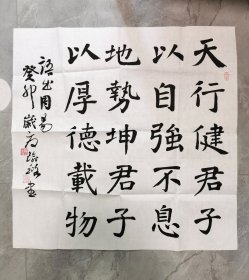 天行健君子
以自強不息
地勢坤君子
以厚德載物
語出周易
癸卯歲